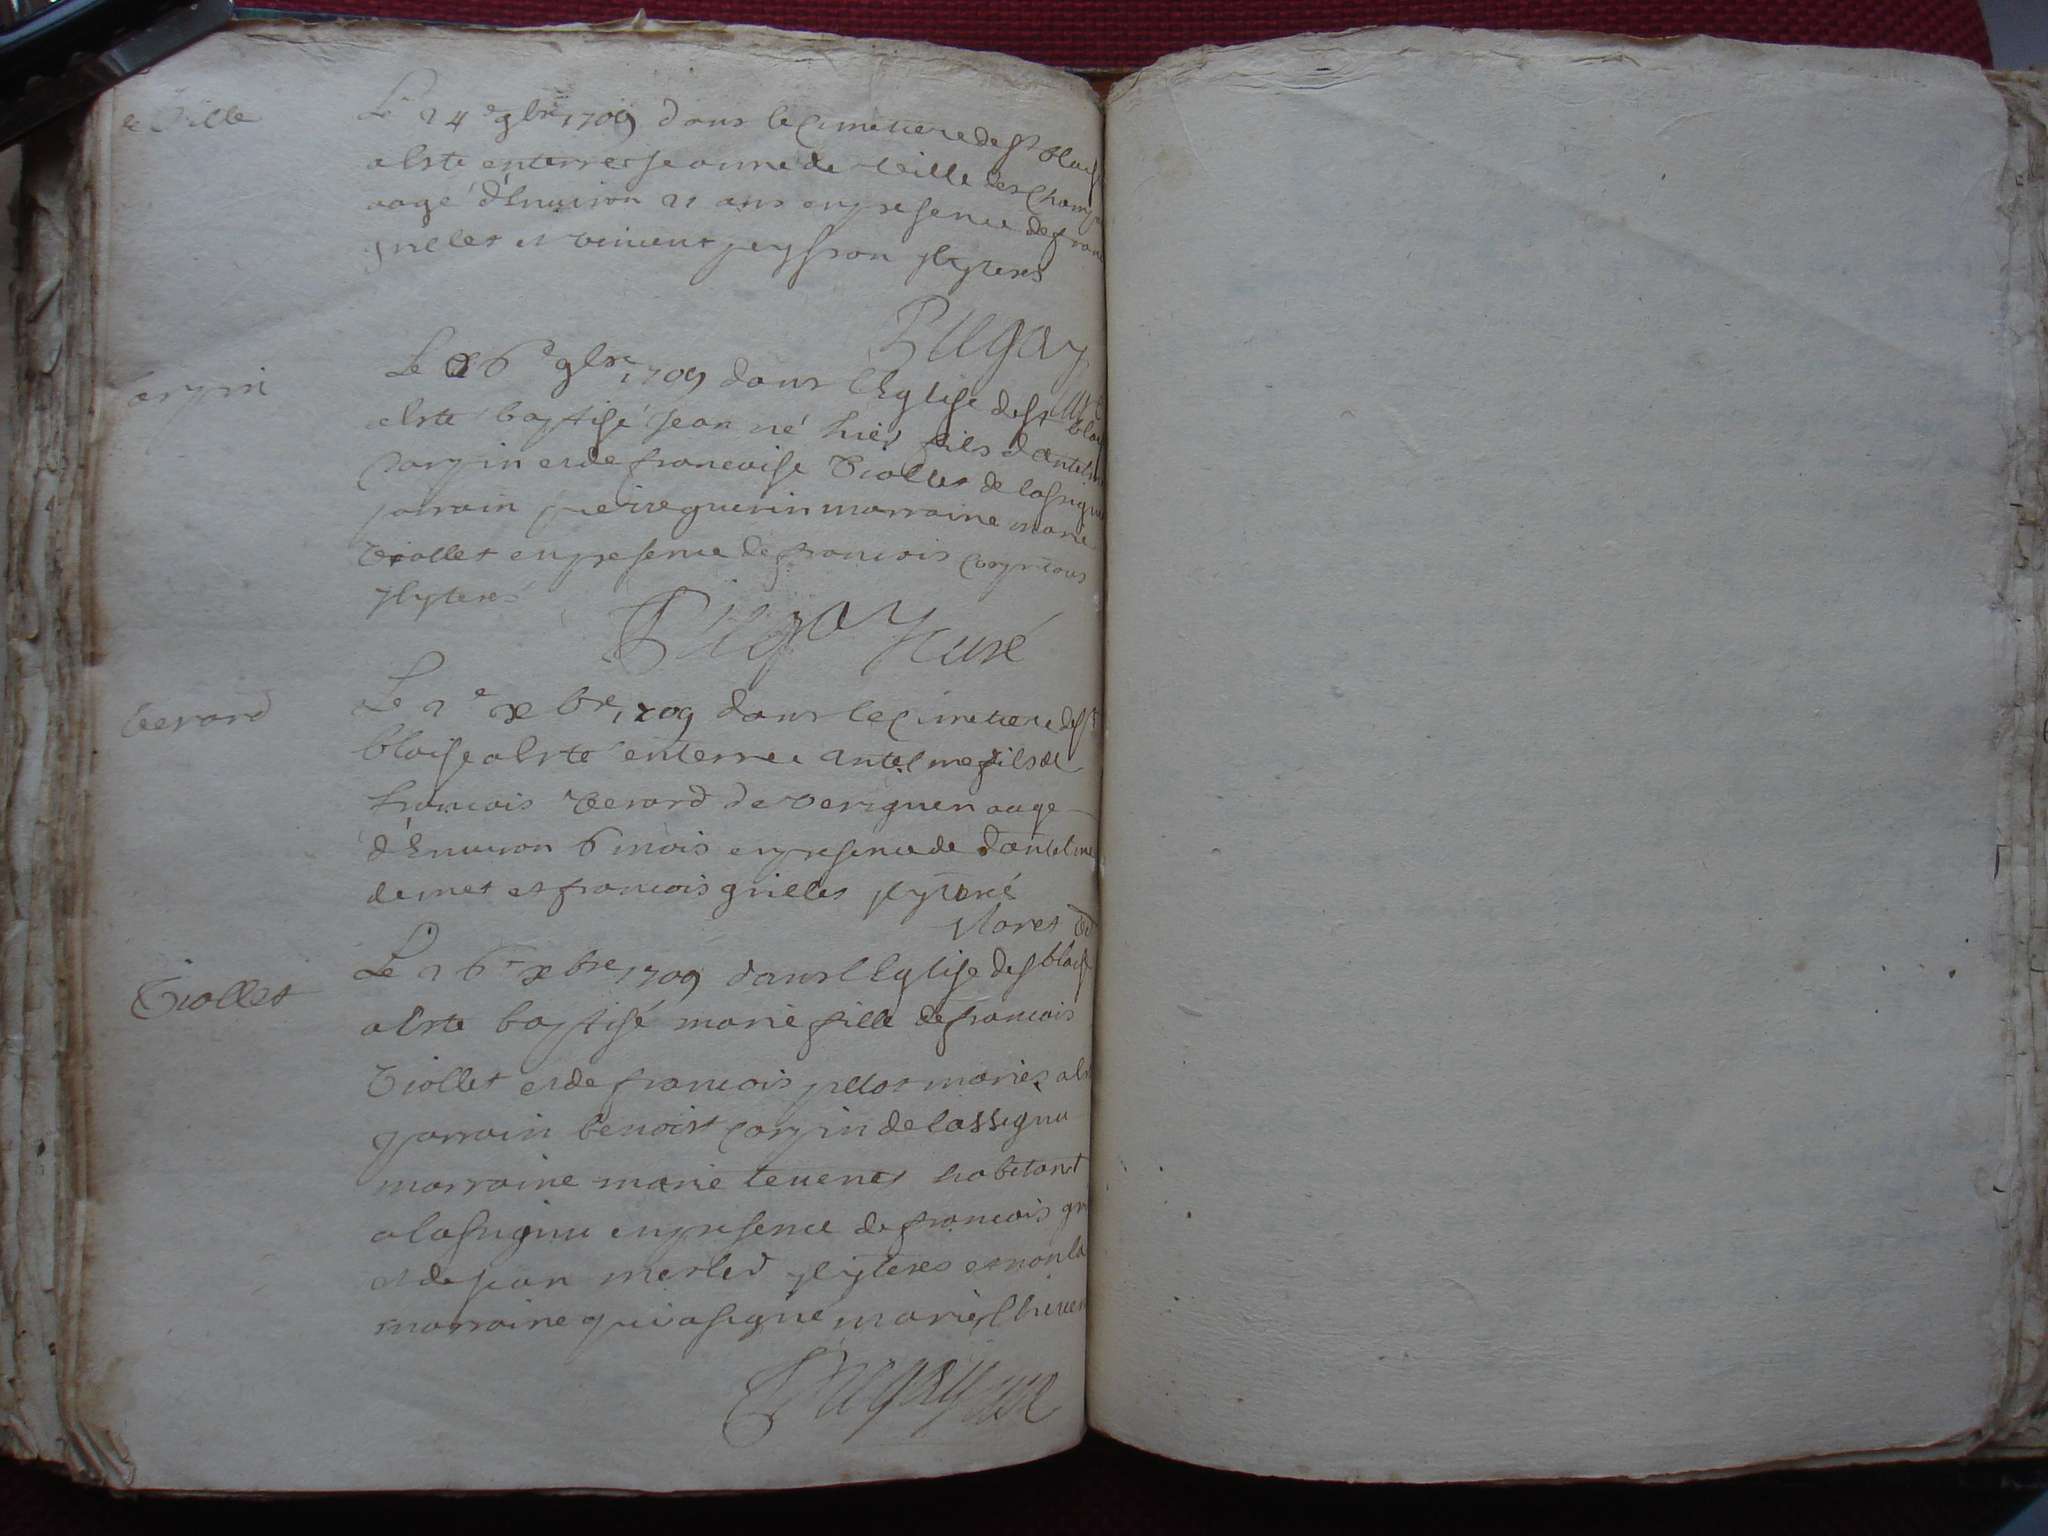 de Ville
Le 24e 9bre 1709 dans le cimetiere de st blais
a este enterree jeanne de ville des champ
aagé d'Enuiron 21 ans en presence de fran
grillet et vincent peysson jllyterés
Pugay
curé
Carpin
Le 26e 9bre 1709 dans l'Eglise de st blai
a este baptisé jean né hier fils d'antelme
Carpin et de francoise Tiollet de lassignieu
parrain pierre guerin marraine marie
Tiollet en presence de francois carpin tous
jllyterés
Pugay curé
Verard
Le 2e xbre 1709 dans le cimetiere de st
blaise a esté enterre antelme fils de
francois Verard de verignen aagé
d'Enuiron 6 mois en presence de d'antelme
demet et francois grillet jllyterés
Maret
Tiollet
Le 26e xbre 1709 dans l'Eglise de st blaise
a este baptisé marie fille de francois
Tiollet et de francois pelot mariés
parrain benoist carpin de lassignieu
marraine marie teuenet habitant
a lassignieu en presence de francois gri
et de jean merlet jllyteres et non la
marraine qui a signé marie theuen
Pugay curé